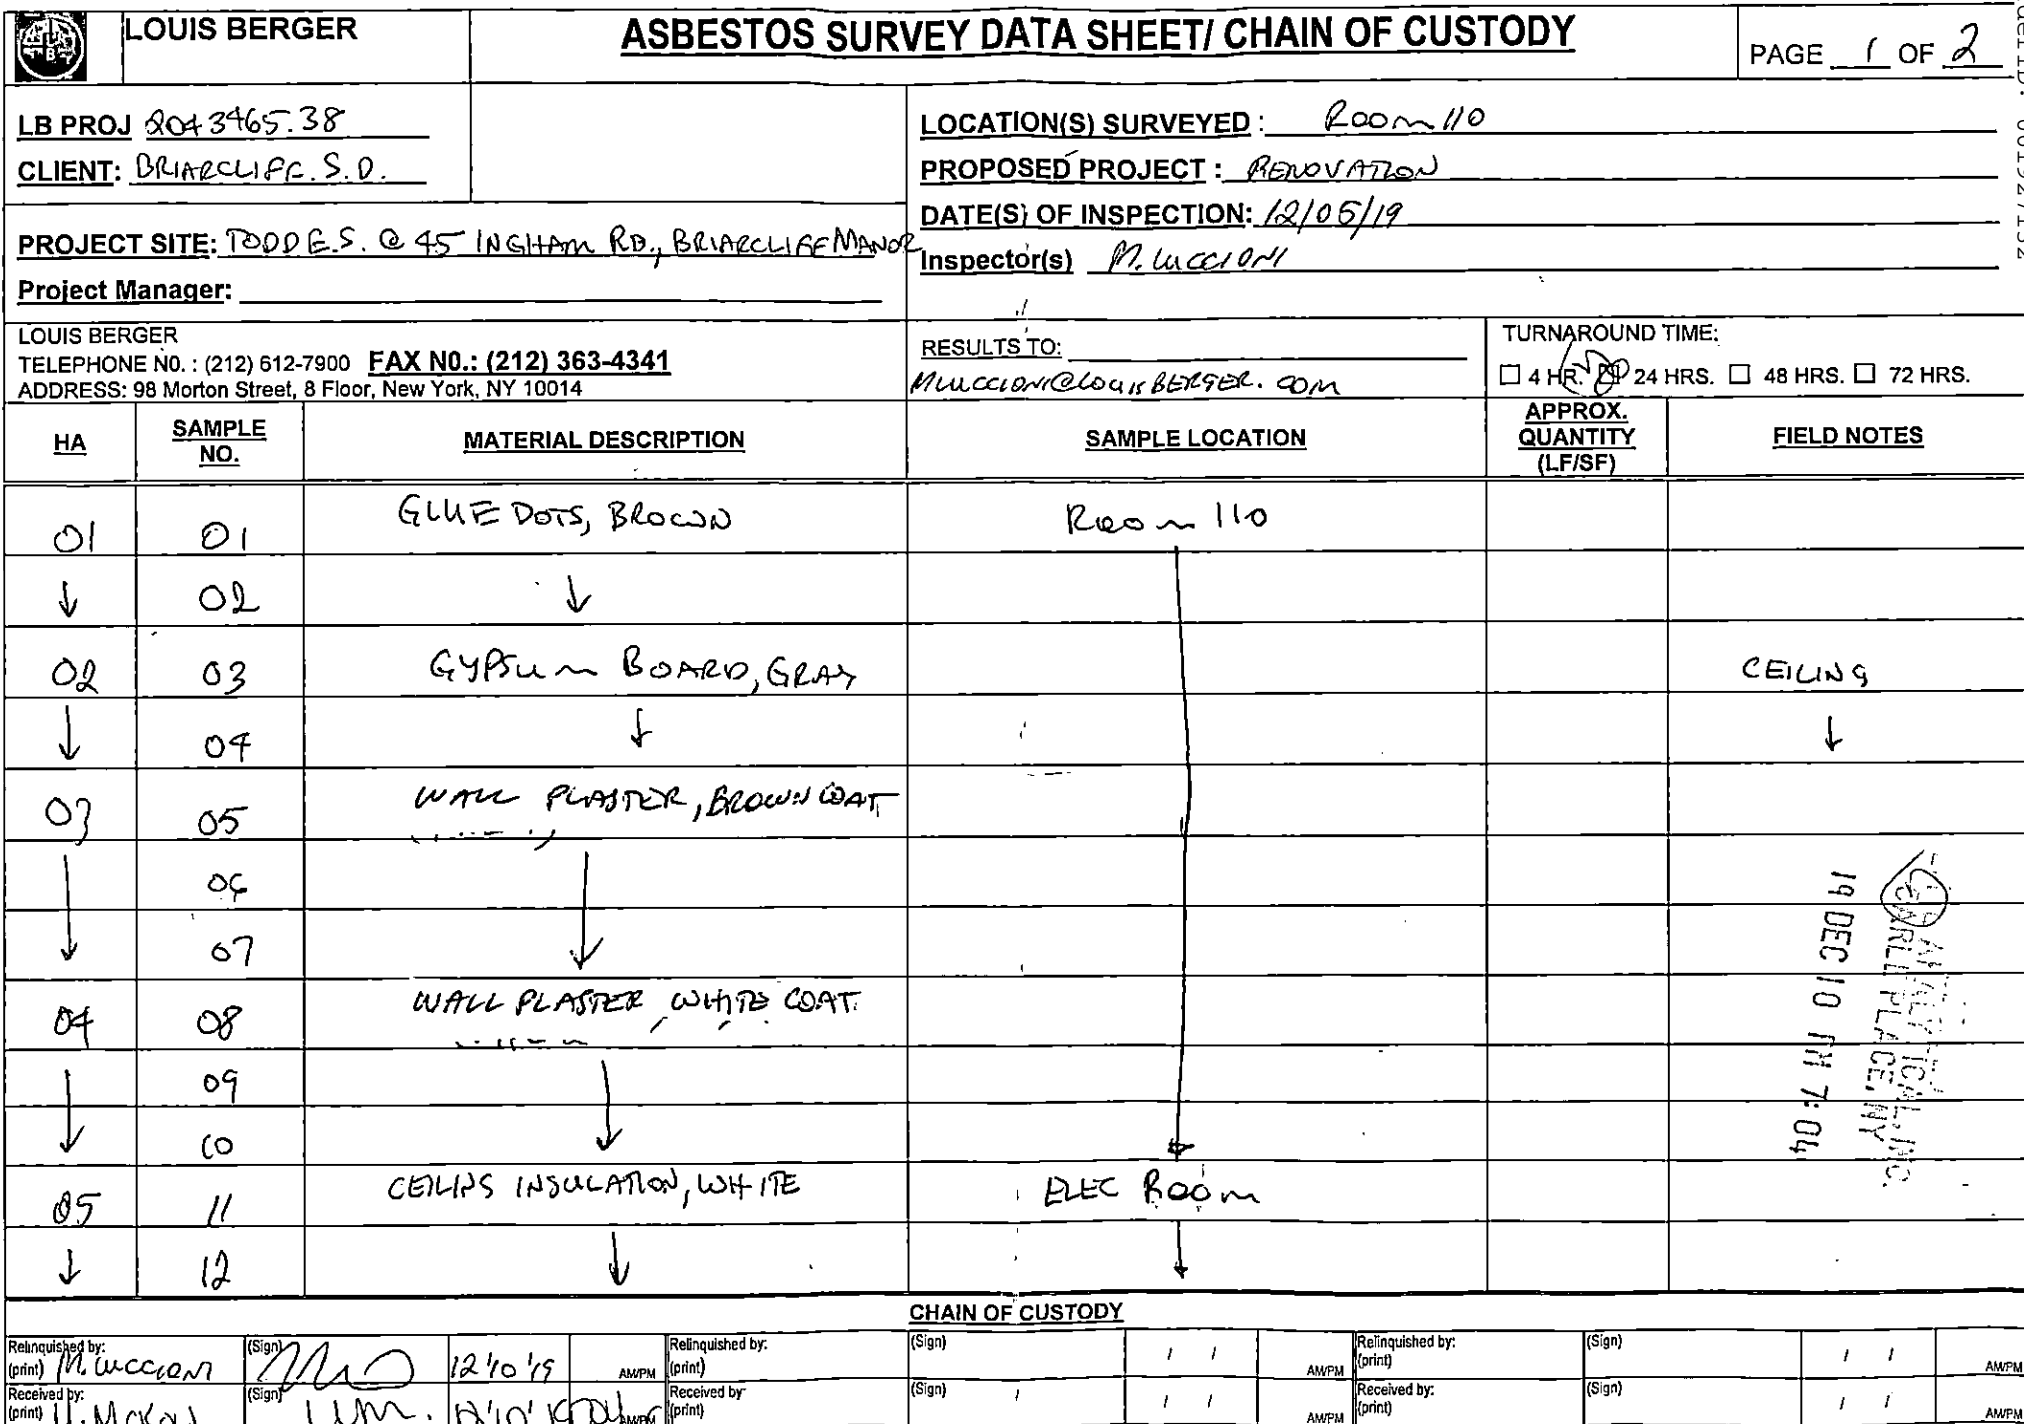 LOUIS BERGER
ASBESTOS SURVEY DATA SHEET/ CHAIN OF CUSTODY
PAGE 1 OF 2
LB PROJ 2043465.38
CLIENT: BRIARCLIFF. S.D.
PROJECT SITE: TODD E.S. @ 45 INGHAM RD., BRIARCLIFF MANOR
Project Manager:
LOCATION(S) SURVEYED : Room 110
PROPOSED PROJECT : RENOVATION
DATE(S) OF INSPECTION: 12/05/19
Inspector(s) M. LUCCIONI
LOUIS BERGER
TELEPHONE N0. : (212) 612-7900 FAX N0.: (212) 363-4341
ADDRESS: 98 Morton Street, 8 Floor, New York, NY 10014
RESULTS TO:
MLUCCIONI@LOUISBERGER.COM
TURNAROUND TIME:
4 HR. 24 HRS. 48 HRS. 72 HRS.
HA SAMPLE NO. MATERIAL DESCRIPTION SAMPLE LOCATION APPROX. QUANTITY (LF/SF) FIELD NOTES
01 01 GLUE DOTS, BROWN Room 110
↓ 02 ↓
02 03 GYPSUM BOARD, GRAY CEILING
↓ 04 ↓ ↓
03 05 WALL PLASTER, BROWN COAT
06
↓ 07 ↓
04 08 WALL PLASTER, WHITE COAT
09
↓ 10 ↓ ↓
05 11 CEILING INSULATION, WHITE ELEC ROOM
↓ 12 ↓ ↓
19 DEC 10 PM 7:04
ANALYTICAL, INC.
CARLE PLACE, NY
CHAIN OF CUSTODY
Relinquished by: (print) M. LUCCIONI (Sign) 12/10/19 AM/PM Relinquished by: (print) (Sign) / / AM/PM Relinquished by: (print) (Sign) / / AM/PM
Received by: (print) McKoy (Sign) AM/PM Received by (print) (Sign) / / AM/PM Received by: (print) (Sign) / / AM/PM